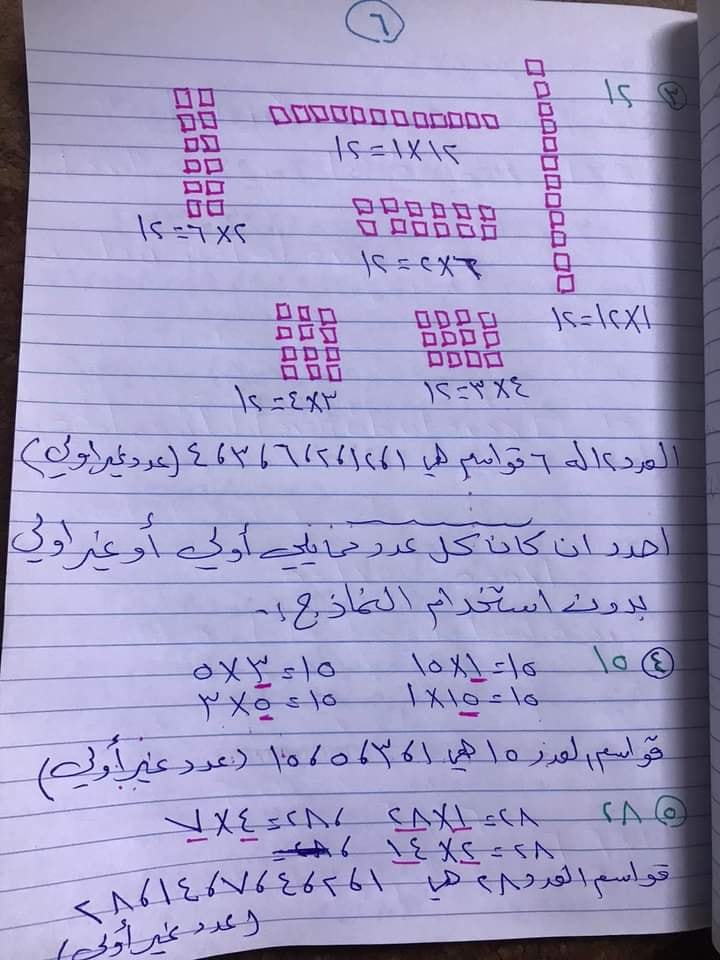 ٦
٣ ١٢
١٢×١=١٢
٢×٦=١٢
٦×٢=١٢
١×١٢=١٢
٤×٣=١٢
٣×٤=١٢
العدد ١٢ له ٦ قواسم هي ١، ١٢، ٢، ٦، ٣، ٤ (عدد غير اولي)
احدد ان كان كل عدد مما يلي أولي أو غير اولي
بدون استخدام النماذج :-
٤ ١٥ ١٥=١×١٥ ١٥=٣×٥
١٥=١٥×١ ١٥=٥×٣
قواسم العدد ١٥ هي ١، ٣، ٥، ١٥ (عدد غير أولي)
٥ ٢٨ ٢٨=١×٢٨ ، ٢٨=٤×٧
٢٨=٢×١٤ ،
قواسم العدد ٢٨ هي ١، ٢، ٤، ٧، ١٤، ٢٨
(عدد غير أولي)